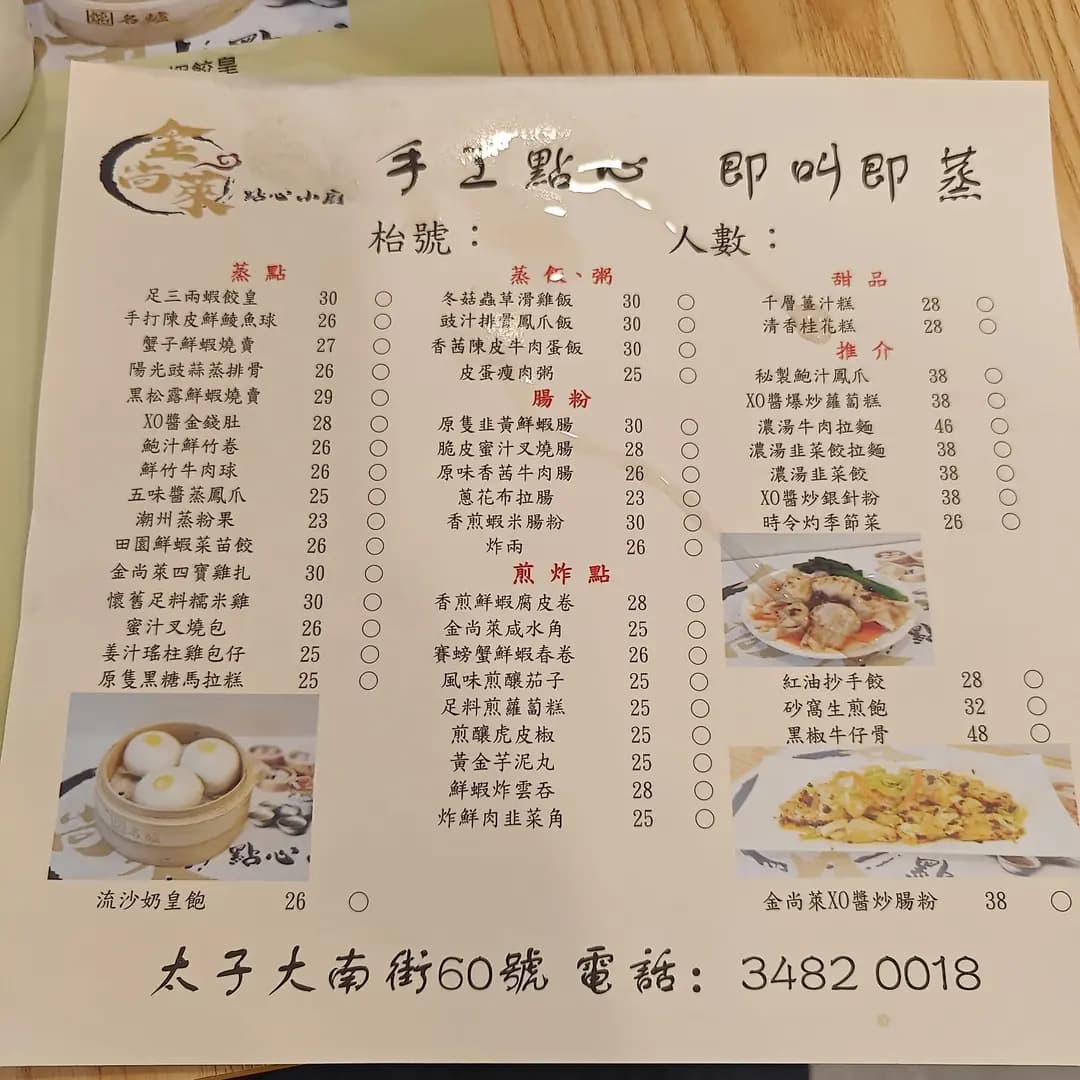 名爐
皇
金
尚
萊
點心小廚
手工點心 即叫即蒸
枱號：
人數：
蒸點
足三兩蝦餃皇 30
手打陳皮鮮鯪魚球 26
蟹子鮮蝦燒賣 27
陽光豉蒜蒸排骨 26
黑松露鮮蝦燒賣 29
XO醬金錢肚 28
鮑汁鮮竹卷 26
鮮竹牛肉球 26
五味醬蒸鳳爪 25
潮州蒸粉果 23
田園鮮蝦菜苗餃 26
金尚萊四寶雞扎 30
懷舊足料糯米雞 30
蜜汁叉燒包 26
姜汁瑤柱雞包仔 25
原隻黑糖馬拉糕 25
流沙奶皇飽 26
蒸飯、粥
冬菇蟲草滑雞飯 30
豉汁排骨鳳爪飯 30
香茜陳皮牛肉蛋飯 30
皮蛋瘦肉粥 25
腸粉
原隻韭黃鮮蝦腸 30
脆皮蜜汁叉燒腸 28
原味香茜牛肉腸 26
蔥花布拉腸 23
香煎蝦米腸粉 30
炸兩 26
煎炸點
香煎鮮蝦腐皮卷 28
金尚萊咸水角 25
賽螃蟹鮮蝦春卷 26
風味煎釀茄子 25
足料煎蘿蔔糕 25
煎釀虎皮椒 25
黃金芋泥丸 25
鮮蝦炸雲吞 28
炸鮮肉韭菜角 25
甜品
千層薑汁糕 28
清香桂花糕 28
推介
秘製鮑汁鳳爪 38
XO醬爆炒蘿蔔糕 38
濃湯牛肉拉麵 46
濃湯韭菜餃拉麵 38
濃湯韭菜餃 38
XO醬炒銀針粉 38
時令灼季節菜 26
紅油抄手餃 28
砂窩生煎飽 32
黑椒牛仔骨 48
金尚萊XO醬炒腸粉 38
太子大南街60號 電話：3482 0018